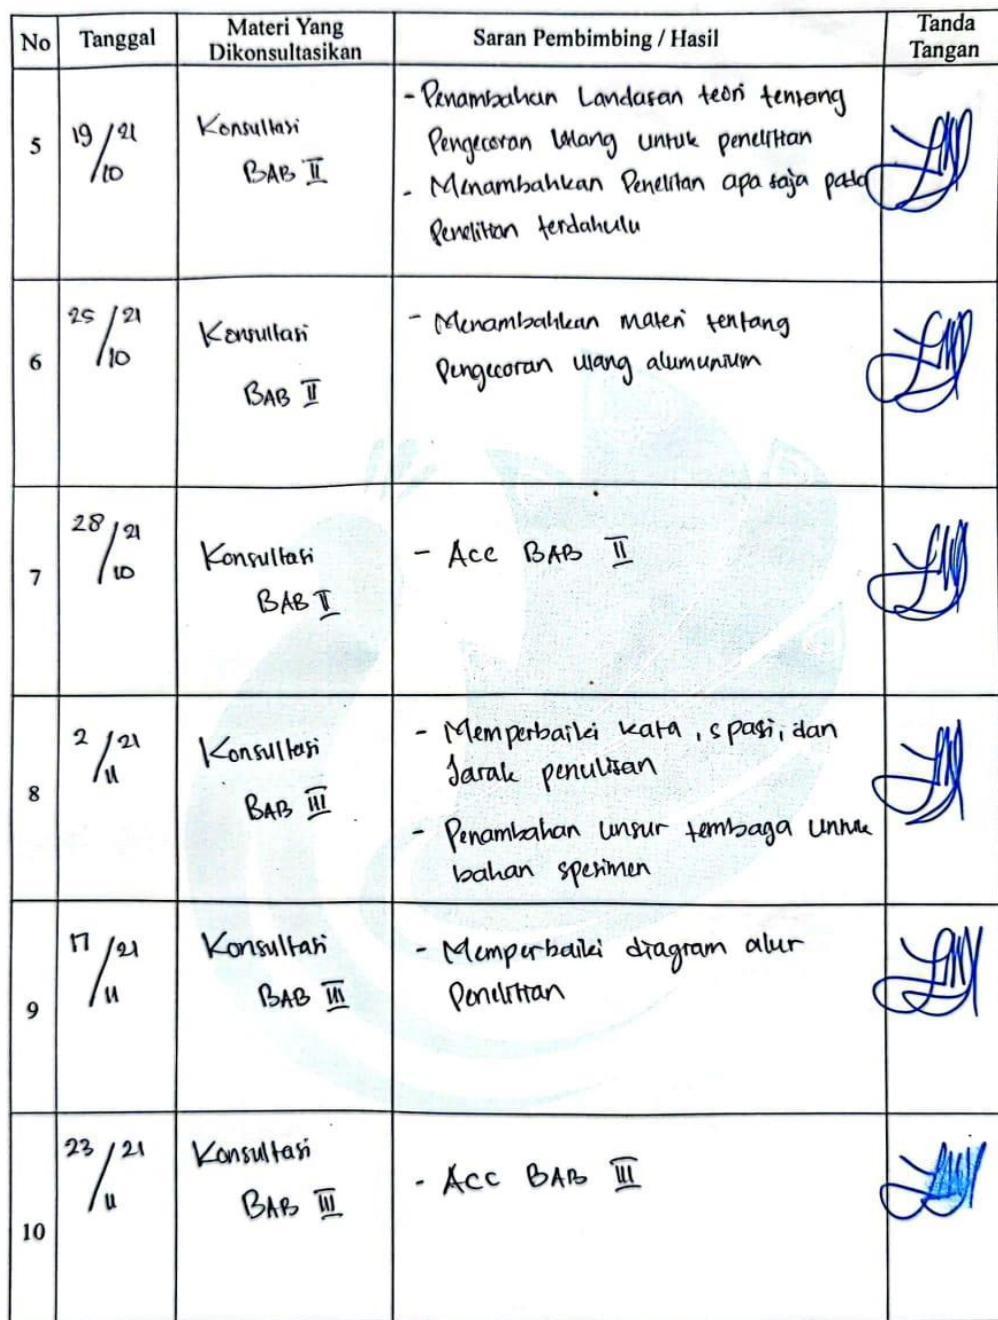 No Tanggal Materi Yang Dikonsultasikan Saran Pembimbing / Hasil Tanda Tangan
5 19/10 21 Konsultasi BAB II
- Penambahan Landasan teori tentang
Pengecoran Ulang untuk penelitian
- Menambahkan Penelitan apa saja pada
Penelitian terdahulu
6 25/10 21 Konsultasi BAB II
- Menambahkan materi tentang
Pengecoran ulang alumunium
7 28/10 21 Konsultasi BAB II
- Acc BAB II
8 2/11 21 Konsultasi BAB III
- Memperbaiki kata, spasi, dan
Jarak penulisan
- Penambahan unsur tembaga untuk
bahan spesimen
9 17/11 21 Konsultasi BAB III
- Memperbaiki diagram alur
Penelitian
10 23/11 21 Konsultasi BAB III
- Acc BAB III